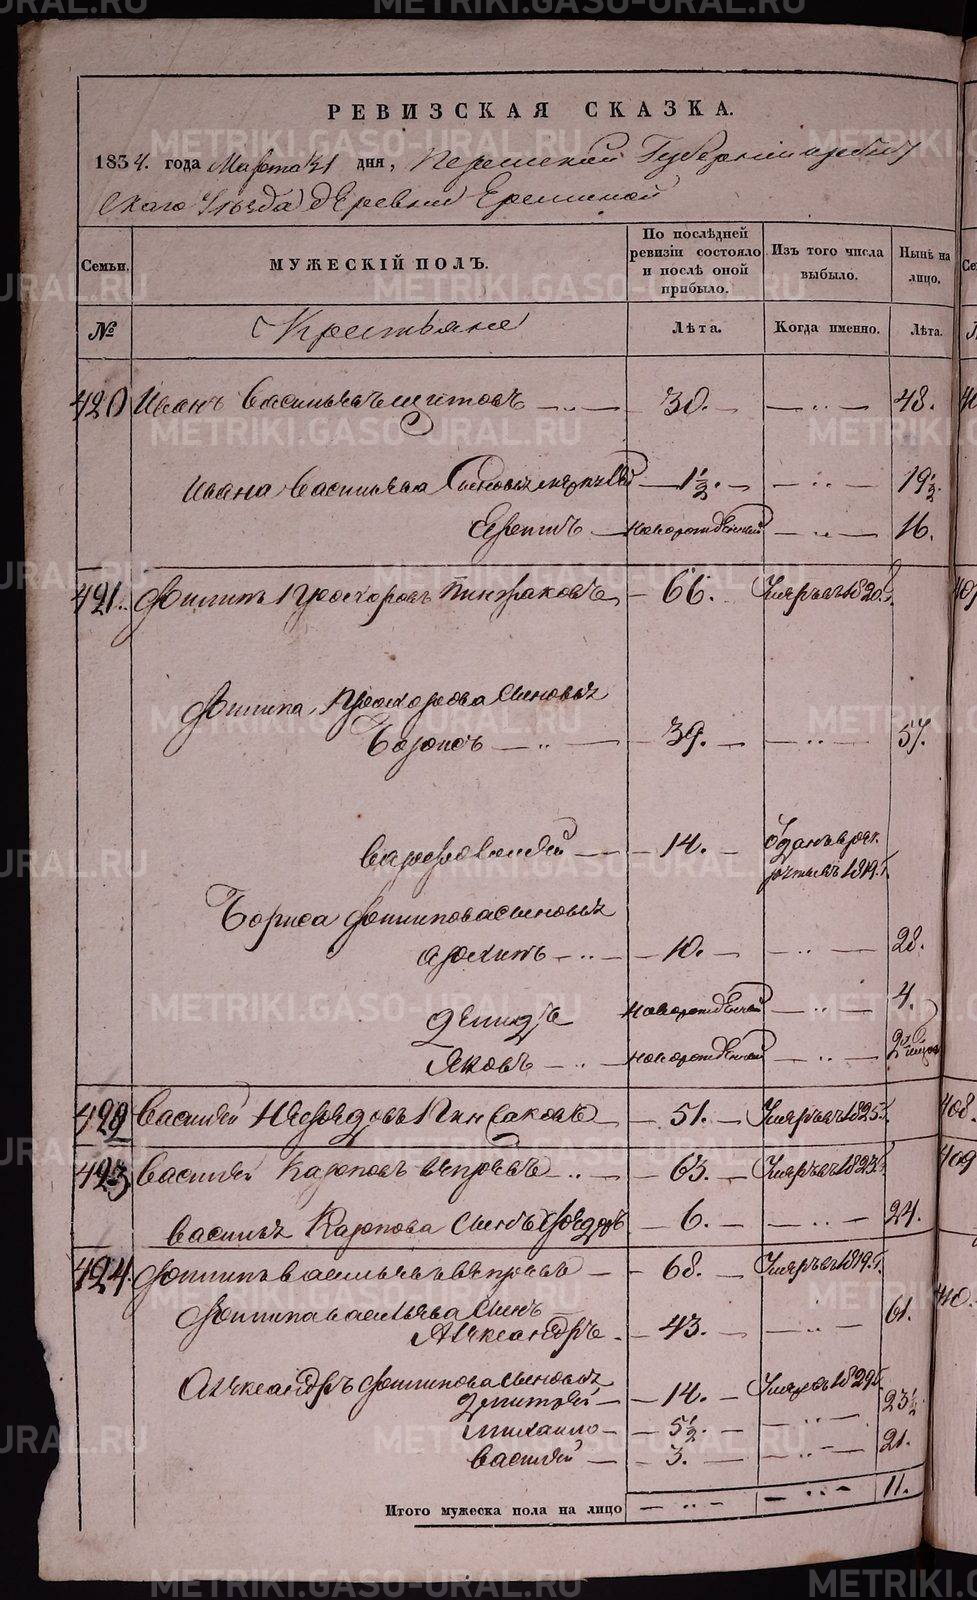 РЕВИЗСКАЯ СКАЗКА.
1834. года Марта 31 дня, Пермской Губернии Ирбит
скаго Уезда деревни Ереминой
Семьи. МУЖЕСКІЙ ПОЛЪ. По послѣдней ревизіи состояло и послѣ оной прибыло. Изъ того числа выбыло. Нынѣ на лицо.
№ Крестьяне Лѣта. Когда именно. Лѣта.
420 Иванъ Васильевъ 30. 48.
Ивана Васильева Сыновья 1½. 19½.
Еремѣ новорожденный 16.
421. Филипъ Прохоровъ 66. Умеръ въ 1820.
Филипа Прохорова Сыновья
Борисъ 39. 57.
14. 1819.
Бориса Филипова Сыновья
Архипъ 10. 28.
Демидъ новорожденной 4.
Яковъ новорожденной 2
422 Василей 51. Умеръ въ 1825
423 Василей Карповъ Вепревъ 63. Умеръ въ 1823
Василья Карпова Сынъ Федоръ 6. 24.
424. Филипъ Васильевъ Вепревъ 68. Умеръ въ 1819
Филипа Васильева Сынъ
Александръ 43. 61.
Александръ Филипова Сыновья
Дмитрей 14. Умеръ въ 1829
Михайло 5½. 23½
Василей 3. 21.
Итого мужеска пола на лицо 11.
METRIKI.GASO-URAL.RU